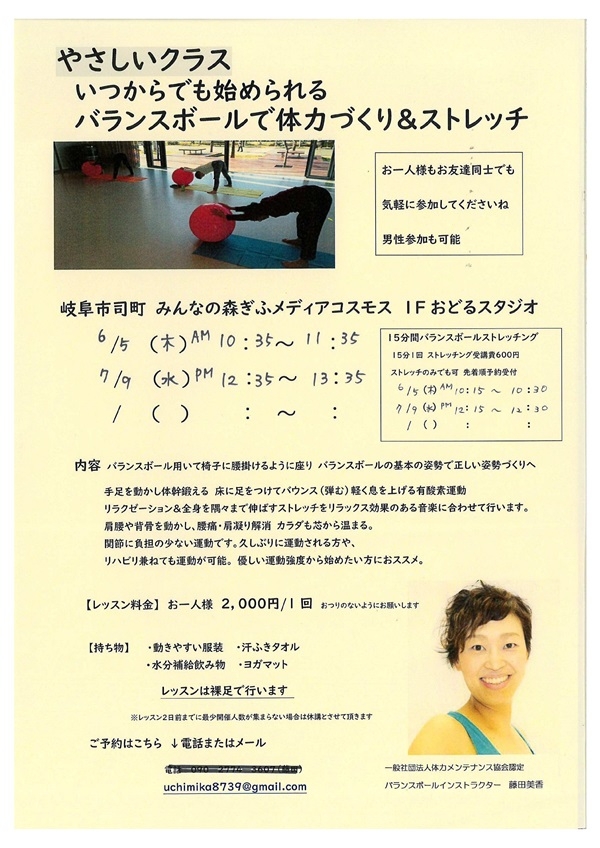 やさしいクラス
いつからでも始められる
バランスボールで体力づくり&ストレッチ
お一人様もお友達同士でも
気軽に参加してくださいね
男性参加も可能
岐阜市司町 みんなの森ぎふメディアコスモス 1Fおどるスタジオ
6/5 (木) AM 10:35～11:35
7/9 (水) PM 12:35～13:35
/ ( ) : ～ :
15分間バランスボールストレッチング
15分1回 ストレッチング受講費600円
ストレッチのみでも可 先着順予約受付
6/5(木) AM 10:15～10:30
7/9(水) PM 12:15～12:30
/ ( ) : :
内容 バランスボール用いて椅子に腰掛けるように座り バランスボールの基本の姿勢で正しい姿勢づくりへ
手足を動かし体幹鍛える 床に足をつけてバウンス(弾む)軽く息を上げる有酸素運動
リラクゼーション&全身を隅々まで伸ばすストレッチをリラックス効果のある音楽に合わせて行います。
肩腰や背骨を動かし、腰痛・肩凝り解消 カラダも芯から温まる。
関節に負担の少ない運動です。久しぶりに運動される方や、
リハビリ兼ねても運動が可能。 優しい運動強度から始めたい方におススメ。
【レッスン料金】 お一人様 2,000円/1回 おつりのないようにお願いします
【持ち物】 ・動きやすい服装 ・汗ふきタオル
・水分補給飲み物 ・ヨガマット
レッスンは裸足で行います
※レッスン2日前までに最少開催人数が集まらない場合は休講とさせて頂きます
ご予約はこちら ↓電話またはメール
uchimika8739@gmail.com
一般社団法人体力メンテナンス協会認定
バランスボールインストラクター 藤田美香